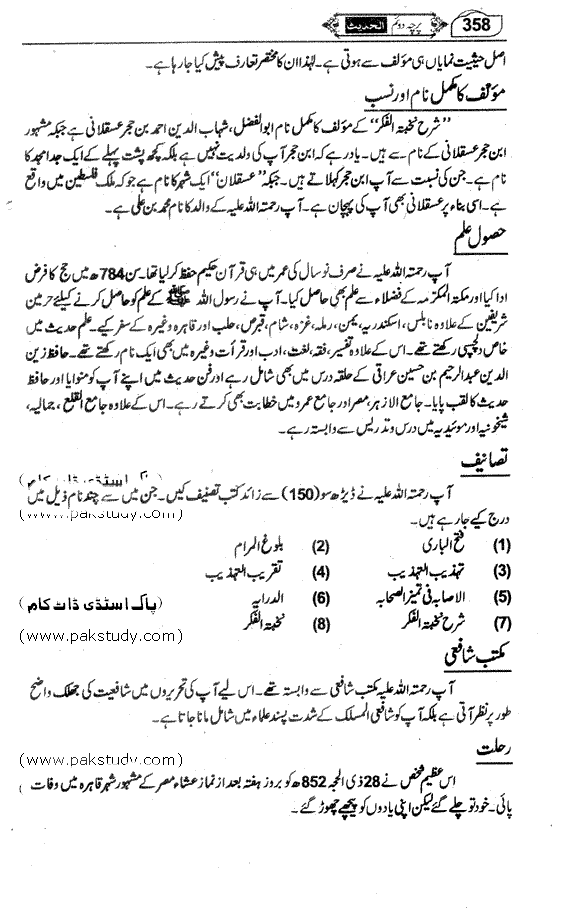 358 الحدیث پرچہ دوئم
اصل حیثیت نمایاں ہی مؤلف سے ہوتی ہے۔ لہٰذا ان کا مختصر تعارف پیش کیا جا رہا ہے۔
مؤلف کا مکمل نام اور نسب
”شرح نخبۃ الفکر“ کے مؤلف کا مکمل نام ابو الفضل، شہاب الدین احمد بن حجر عسقلانی ہے جبکہ مشہور
ابن حجر عسقلانی کے نام سے ہیں۔ یاد رہے کہ ابن حجر آپ کی ولدیت نہیں ہے بلکہ کچھ پشت پہلے کے ایک جد امجد کا
نام ہے۔ جن کی نسبت سے آپ ابن حجر کہلاتے ہیں۔ جبکہ ”عسقلان“ ایک شہر کا نام ہے جو کہ ملک فلسطین میں واقع
ہے۔ اسی بناء پر عسقلانی بھی آپ کی پہچان ہے۔ آپ رحمۃ اللہ علیہ کے والد کا نام محمد بن علی ہے۔
حصول علم
آپ رحمۃ اللہ علیہ نے صرف نو سال کی عمر میں ہی قرآن حکیم حفظ کر لیا تھا۔ سن 784ھ میں حج کا فرض
ادا کیا اور مکۃ المکرمہ کے فضلاء سے علم بھی حاصل کیا۔ آپ نے رسول اللہ ﷺ کے علم کو حاصل کرنے کیلئے حرمین
شریفین کے علاوہ نابلس، اسکندریہ، یمن، رملہ، غزہ، شام، قبرص، حلب اور قاہرہ وغیرہ کے سفر کیے۔ علم حدیث میں
خاص دلچسپی رکھتے تھے۔ اس کے علاوہ تفسیر، فقہ، لغت، ادب اور قرأت وغیرہ میں بھی ایک نام رکھتے تھے۔ حافظ زین
الدین عبد الرحیم بن حسین عراقی کے حلقہ درس میں بھی شامل رہے اور فن حدیث میں اپنے آپ کو منوایا اور حافظ
حدیث کا لقب پایا۔ جامع الازہر مصر اور جامع عمرو میں خطابت بھی کرتے رہے۔ اس کے علاوہ جامع القلع، جمالیہ،
شیخونیہ اور موئیدیہ میں درس و تدریس سے وابستہ رہے۔
تصانیف
آپ رحمۃ اللہ علیہ نے ڈیڑھ سو (150) سے زائد کتب تصنیف کیں۔ جن میں سے چند نام ذیل میں
(www.pakstudy.com)
درج کیے جا رہے ہیں۔
(1) فتح الباری (2) بلوغ المرام
(3) تہذیب التہذیب (4) تقریب التہذیب
(5) الاصابہ فی تمیز الصحابہ (6) الدرایہ
(پاک اسٹڈی ڈاٹ کام)
(7) شرح نخبۃ الفکر (8) نخبۃ الفکر
(www.pakstudy.com)
مکتب شافعی
آپ رحمۃ اللہ علیہ مکتب شافعی سے وابستہ تھے۔ اس لیے آپ کی تحریروں میں شافعیت کی جھلک واضح
طور پر نظر آتی ہے بلکہ آپ کو شافعی المسلک کے شدت پسند علماء میں شامل مانا جاتا ہے۔
رحلت
(www.pakstudy.com)
اس عظیم شخص نے 28 ذی الحجہ 852ھ کو بروز ہفتہ بعد از نماز عشاء مصر کے مشہور شہر قاہرہ میں وفات
پائی۔ خود تو چلے گئے لیکن اپنی یادوں کو پیچھے چھوڑ گئے۔